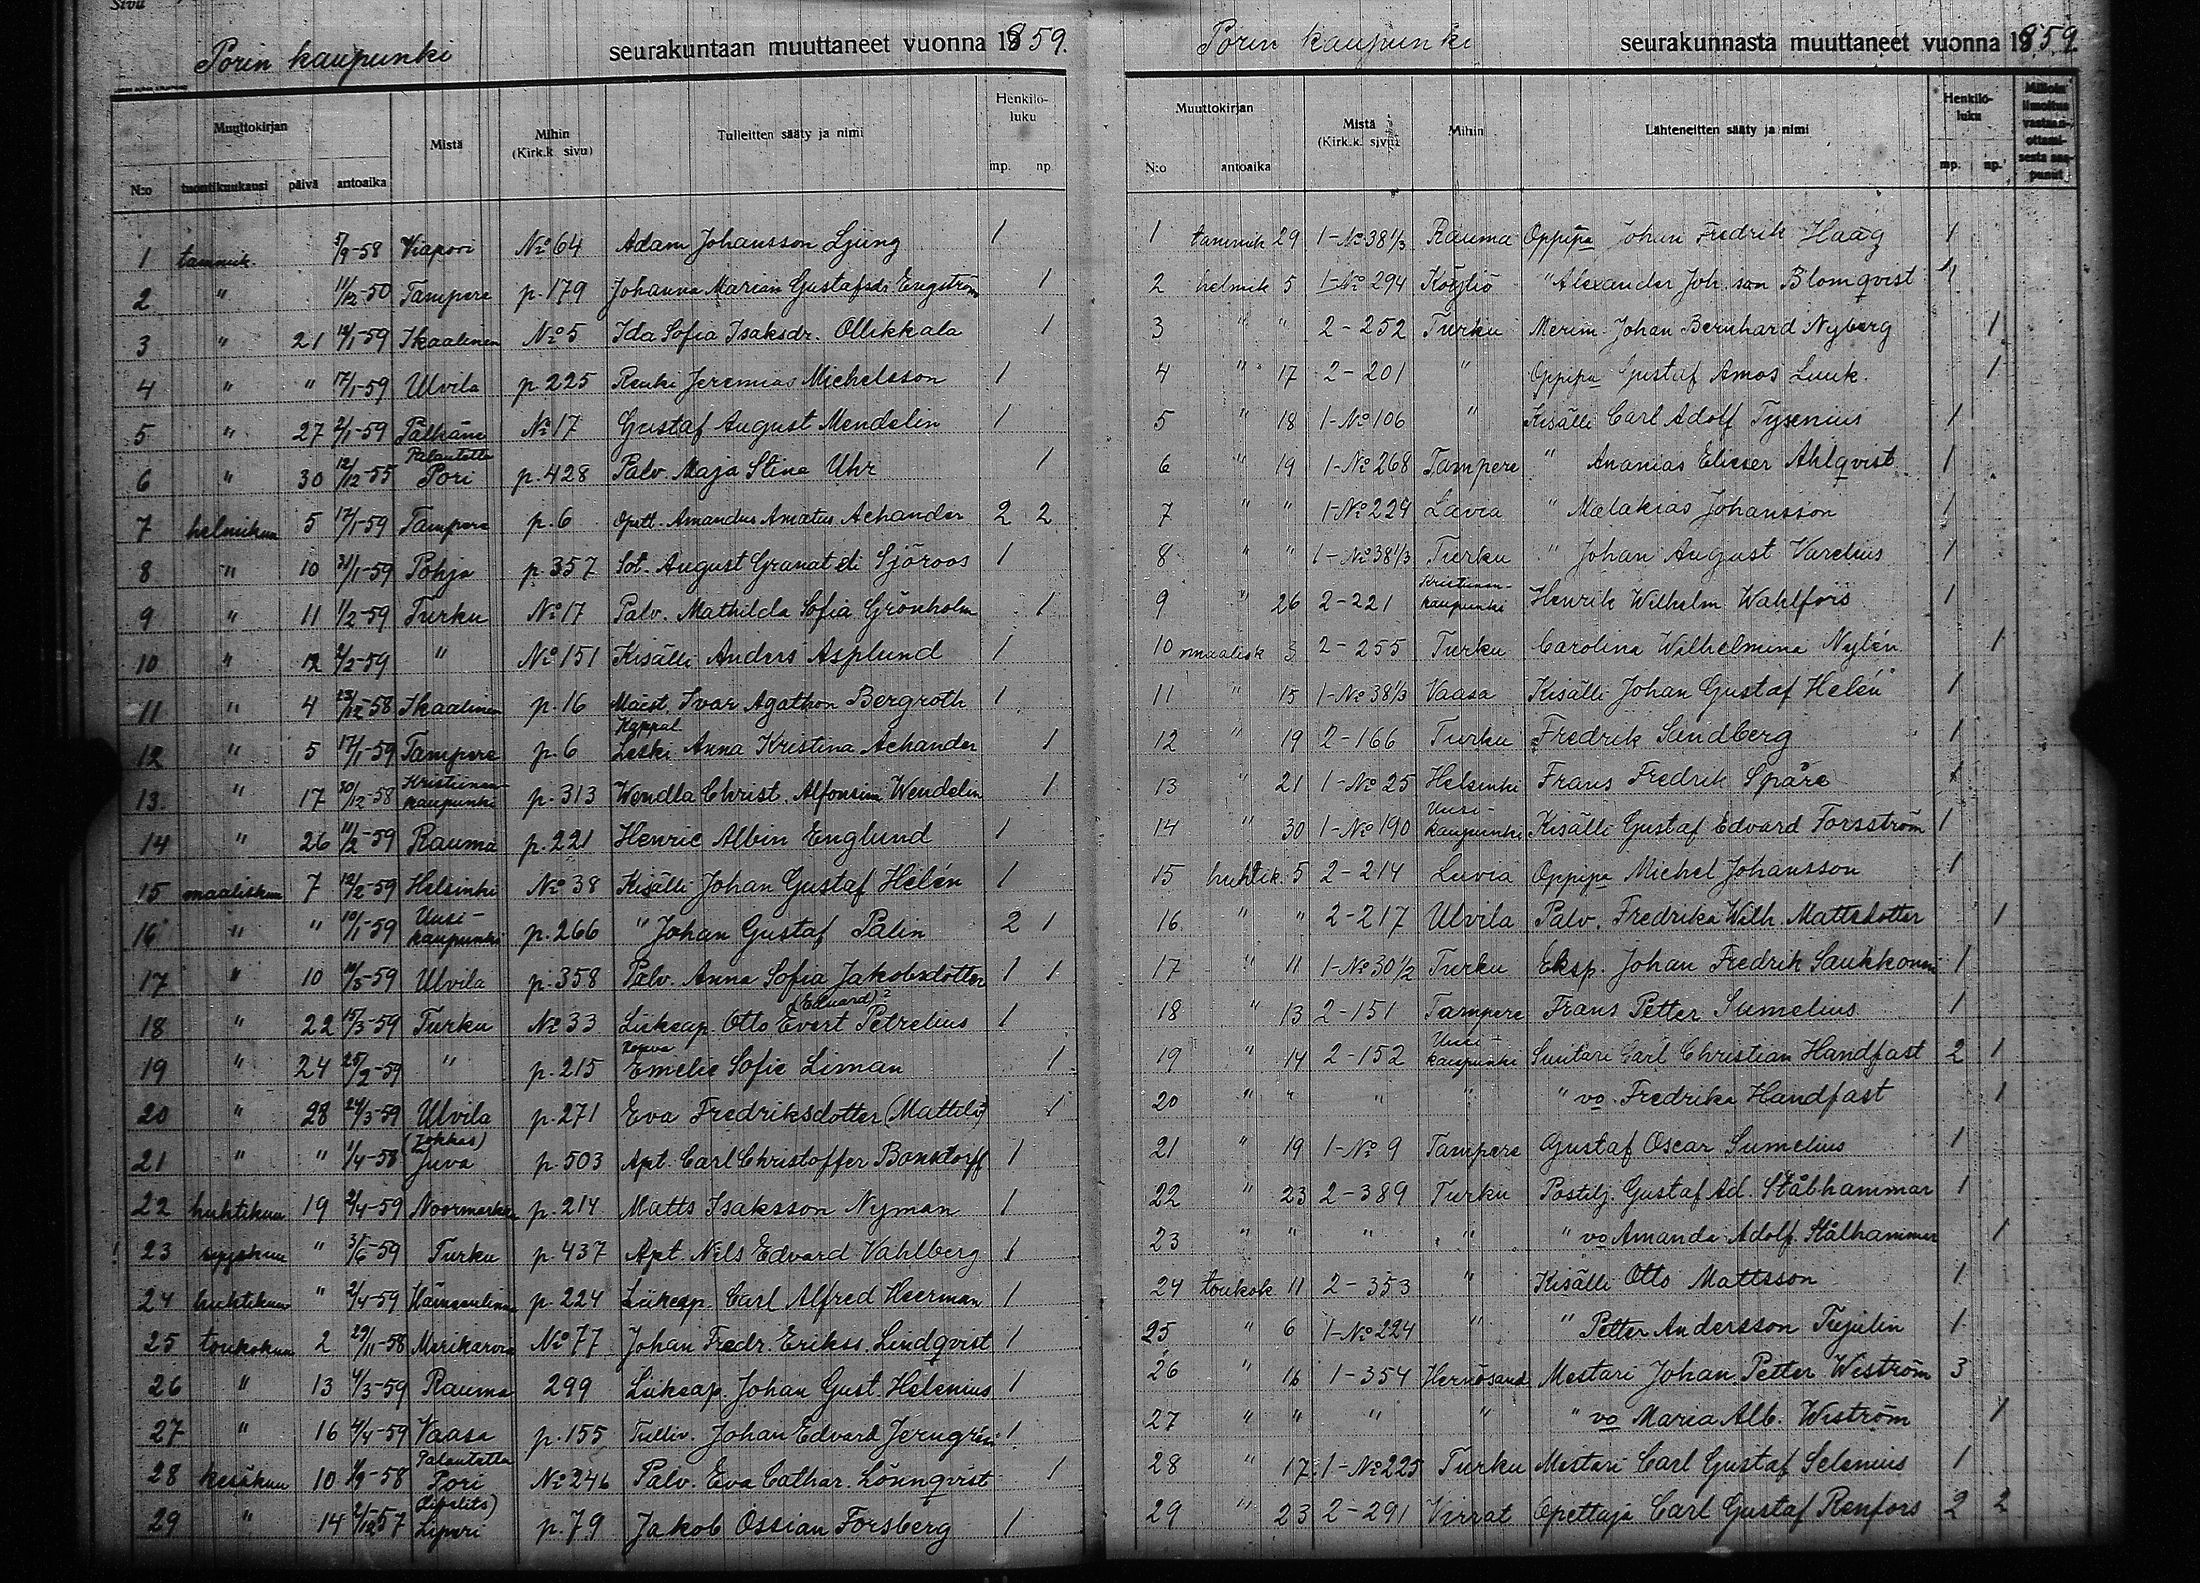 Sivu
Porin kaupunki seurakuntaan muuttaneet vuonna 1859.
Muuttokirjan Mistä Mihin (Kirk.k. sivu) Tulleitten sääty ja nimi Henkilö-luku
N:o tuontikuukausi päivä antoaika mp. np.
1 tammik. 5/9-58 Viapori No 64 Adam Johansson Ljung 1
2 " 11/12-50 Tampere p. 179 Johanna Marian Gustafsdr Engström 1
3 " 21 12/1-59 Ikaalinen No 5 Ida Sofia Isaksdr. Ollikkala 1
4 " " 17/1-59 Ulvila p. 225 Renki Jeremias Michelsson 1
5 " 27 2/1-59 Pälkäne No 17 Gustaf August Mendelin 1
6 " 30 12/12-55 Palautettu Pori p. 428 Palv. Maja Stina Uhr 1
7 helmikuu 5 17/1-59 Tampere p. 6 Opett. Amandus Amatus Achander 2 2
8 " 10 31/1-59 Pohja p. 357 Sot. August Granat eli Sjöroos 1
9 " 11 1/2-59 Turku No 17 Palv. Mathilda Sofia Grönholm 1
10 " 12 2/2-59 " No 151 Kisälli Anders Asplund 1
11 " 4 23/12-58 Ikaalinen p. 16 Maist. Ivar Agathon Bergroth 1
12 " 5 17/1-59 Tampere p. 6 Kappal. Leski Anna Kristina Achander 1
13. " 17 30/12-58 Kristiinan-kaupunki p. 313 Wendla Christ. Alfonsina Wendelin 1
14 " 26 11/2-59 Rauma p. 221 Henric Albin Englund 1
15 maaliskuu 7 12/2-59 Helsinki No 38 Kisälli Johan Gustaf Helén 1
16 " " 10/1-59 Uusi-kaupunki p. 266 " Johan Gustaf Palin 2 1
17 " 10 10/3-59 Ulvila p. 358 Palv. Anna Sofia Jakobsdotter 1 1
18 " 22 15/3-59 Turku No 33 Liikeap. Otto Evert (Eduard)? Petrelius 1
19 " 24 25/2-59 " p. 215 Emelie Sofie Liman 1
20 " 28 24/3-59 Ulvila p. 271 Eva Fredriksdotter (Mattila) 1
21 " " 1/4-58 (Jokkas) Juva p. 503 Apt. Carl Christoffer Bonsdorff 1
22 huhtikuu 19 2/4-59 Noormarkku p. 214 Matts Isaksson Nyman 1
23 syyskuu " 3/6-59 Turku p. 437 Apt. Nils Edvard Vahlberg 1
24 huhtikuu " 2/4-59 Hämeenlinna p. 224 Liikeap. Carl Alfred Heerman 1
25 toukokuu 2 29/11-58 Merikarvia No 77 Johan Fredr. Erikss. Lindqvist 1
26 " 13 4/3-59 Rauma 299 Liikeap. Johan Gust. Helenius 1
27 " 16 4/4-59 Vaasa p. 155 Tulliv. Johan Edvard Jerngrén 1
28 kesäkuu 10 1/9-58 Palautettu Pori No 246 Palv. Eva Cathar. Lönnqvist 1
29 " 14 2/12-57 (Libelits) Liperi p. 79 Jakob Ossian Forsberg 1
Porin kaupunki seurakunnasta muuttaneet vuonna 1859
Muuttokirjan Mistä (Kirk.k. sivu) Mihin Lähteneitten sääty ja nimi Henkilö-luku Milloin ilmoitus vastaan-ottami-sesta saa-punut
N:o antoaika mp. np.
1 tammik 29 1-No 38 1/3 Rauma Oppipa Johan Fredrik Haag 1
2 helmik 5 1-No 294 Köyliö " Alexander Joh. son Blomqvist 1
3 " " 2-252 Turku Merim. Johan Bernhard Nyberg 1
4 " 17 2-201 " Oppipa Gustaf Amos Luuk. 1
5 " 18 1-No 106 " Kisälli Carl Adolf Tysenius 1
6 " 19 1-No 268 Tampere " Ananias Elieser Ahlqvist 1
7 " " 1-No 229 Lavia " Malakias Johansson 1
8 " " 1-No 38 1/3 Turku " Johan August Varelius 1
9 " 26 2-221 Kristiinan-kaupunki Henrik Wilhelm Wahlfors 1
10 maalisk 3 2-255 Turku Carolina Wilhelmina Nylén 1
11 " 15 1-No 38 1/3 Vaasa Kisälli Johan Gustaf Helén 1
12 " 19 2-166 Turku Fredrik Sandberg 1
13 " 21 1-No 25 Helsinki Frans Fredrik Spåre 1
14 " 30 1-No 190 Uusi-kaupunki Kisälli Gustaf Edvard Forsström 1
15 huhtik 5 2-214 Luvia Oppipa Michel Johansson 1
16 " " 2-217 Ulvila Palv. Fredrika Wilh. Mattsdotter 1
17 " 11 1-No 30 1/2 Turku Eksp. Johan Fredrik Saukkonen 1
18 " 13 2-151 Tampere Frans Petter Sumelius 1
19 " 14 2-152 Uusi-kaupunki Suutari Carl Christian Handfast 2 1
20 " " " " " vo. Fredrika Handfast 1
21 " 19 1-No 9 Tampere Gustaf Oscar Sumelius 1
22 " 23 2-389 Turku Postilj. Gustaf Ad. Stålhammar 1
23 " " " " " vo Amanda Adolf. Stålhammar 1
24 toukok 11 2-353 " Kisälli Otto Mattsson 1
25 " 6 1-No 224 " " Petter Andersson 1
26 " 16 1-354 Hernösand Mestari Johan Petter Wiström 3
27 " " " " " vo Maria Alb. Wiström 1
28 " 17 1-No 225 Turku Mestari Carl Gustaf Selenius 1
29 " 23 2-291 Virrat Opettaja Carl Gustaf Renfors 2 2